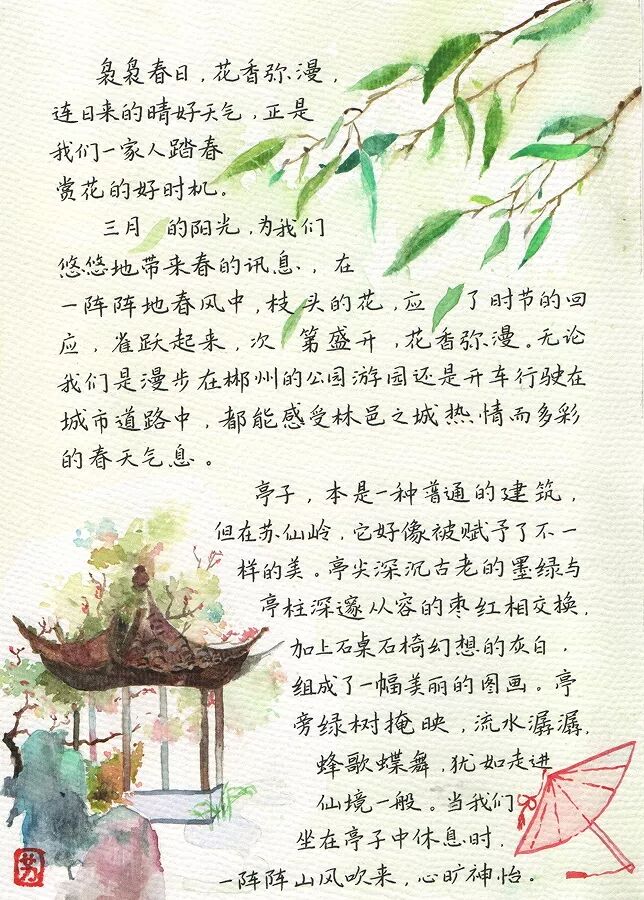 袅袅春日，花香弥漫，
连日来的晴好天气，正是
我们一家人踏春
赏花的好时机。
三月的阳光，为我们
悠悠地带来春的讯息，在
一阵阵地春风中，枝头的花，应了时节的回
应，雀跃起来，次第盛开，花香弥漫。无论
我们是漫步在郴州的公园游园还是开车行驶在
城市道路中，都能感受林邑之城热情而多彩
的春天气息。
亭子，本是一种普通的建筑，
但在苏仙岭，它好像被赋予了不一
样的美。亭尖深沉古老的墨绿与
亭柱深邃从容的枣红相交换，
加上石桌石椅幻想的灰白，
组成了一幅美丽的图画。亭
旁绿树掩映，流水潺潺，
蜂歌蝶舞，犹如走进
仙境一般。当我们
坐在亭子中休息时，
一阵阵山风吹来，心旷神怡。